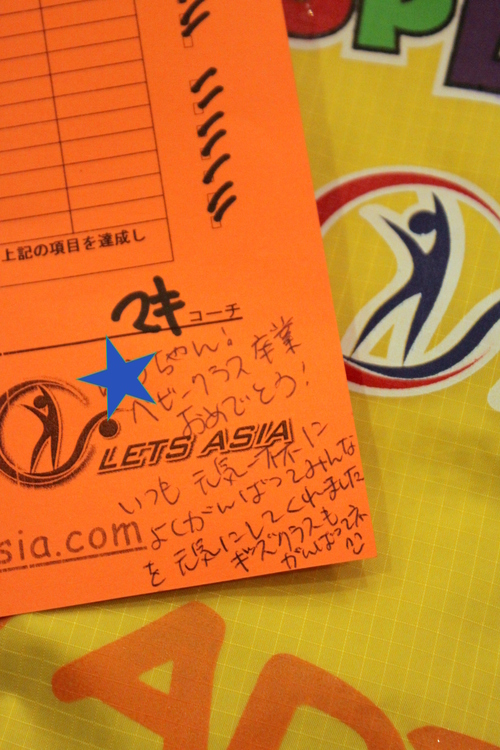 上記の項目を達成し
マキ コーチ
ちゃん!
ベビークラス卒業
おめでとう!
LETS ASIA
いつも 元気一杯に
よくがんばってみんな
を元気にしてくれました
sia.com
キッズクラスも
がんばってネ